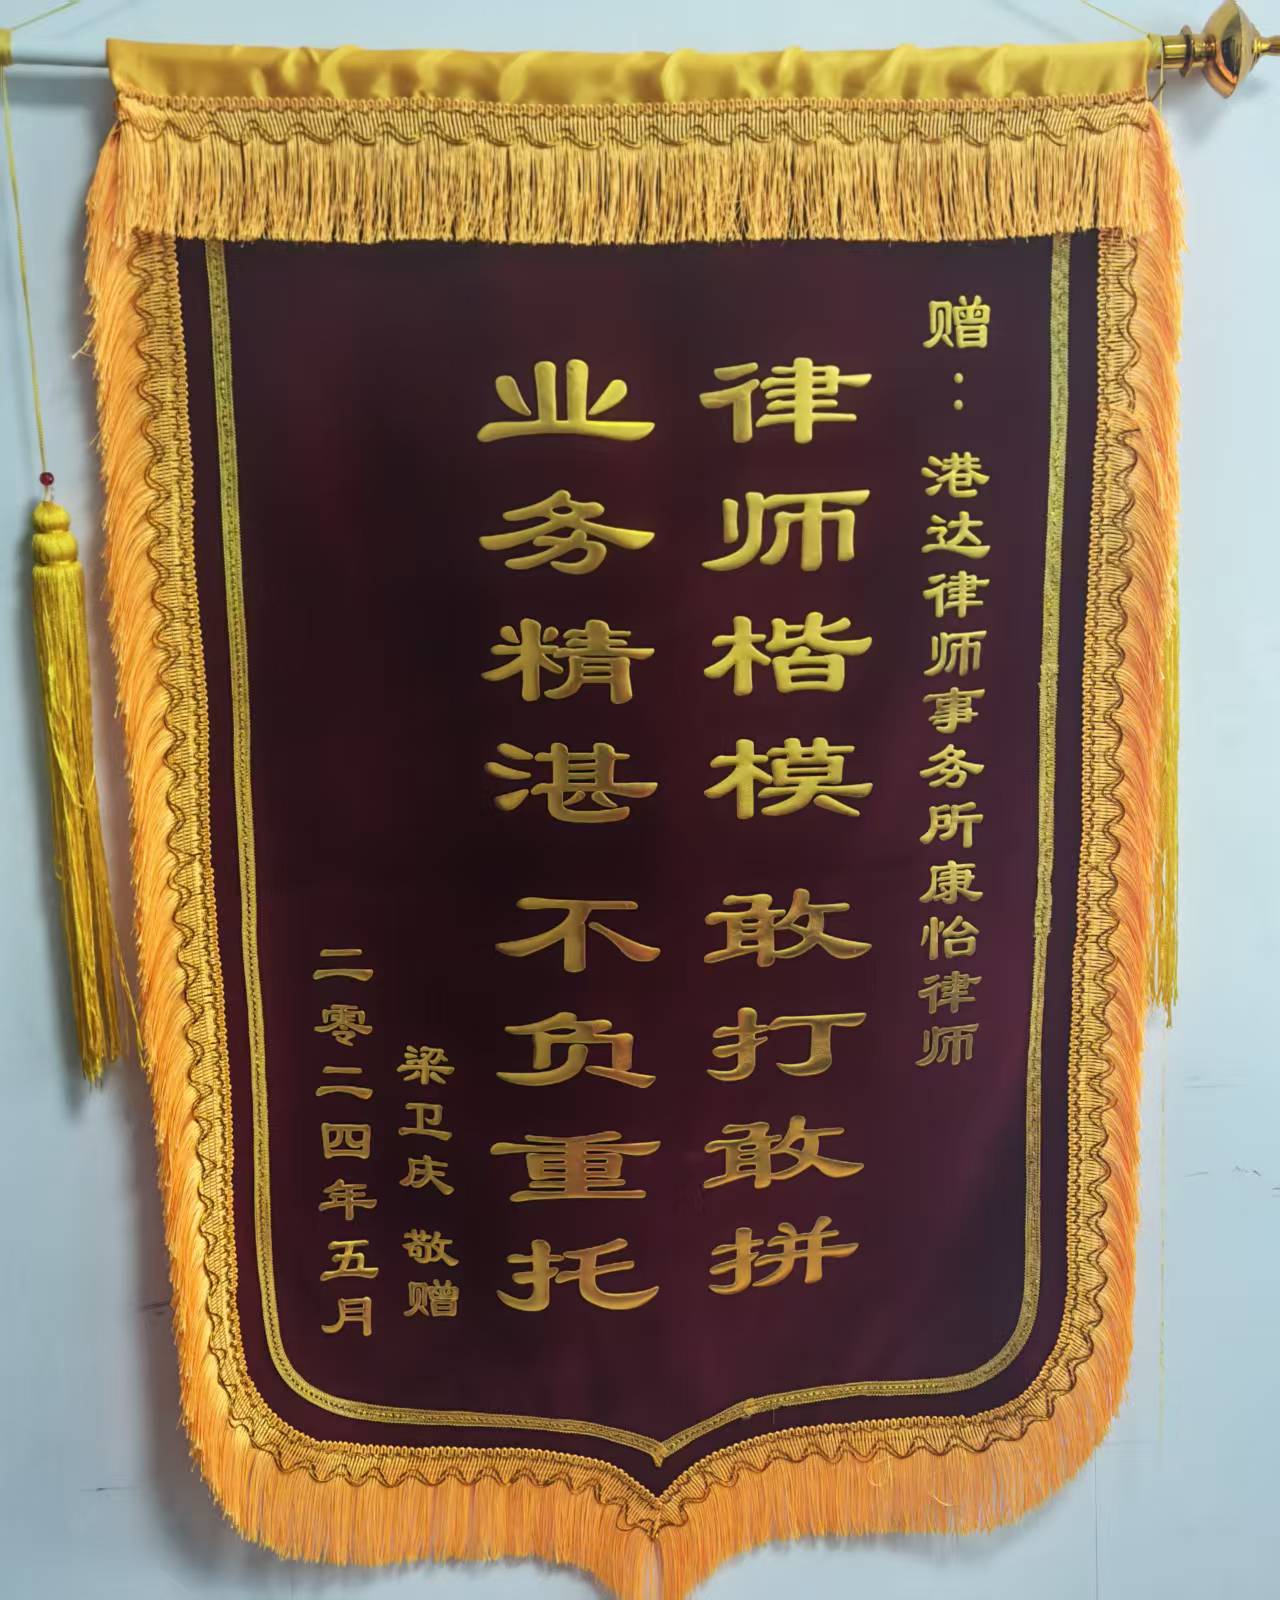 赠：港达律师事务所康怡律师
律师楷模敢打敢拼
业务精湛不负重托
梁卫庆 敬赠
二零二四年五月